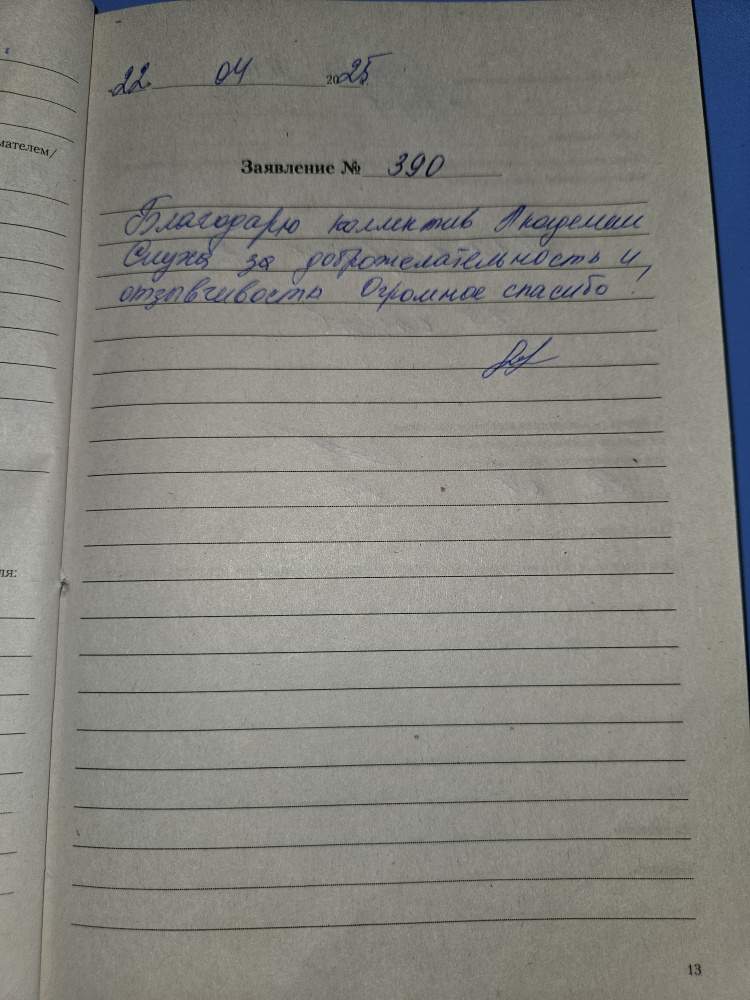 мателем/
ля:
22 04 2025
Заявление № 390
Благодарю коллектив Академии
Слуха за доброжелательность и
отзывчивость Огромное спасибо!
13